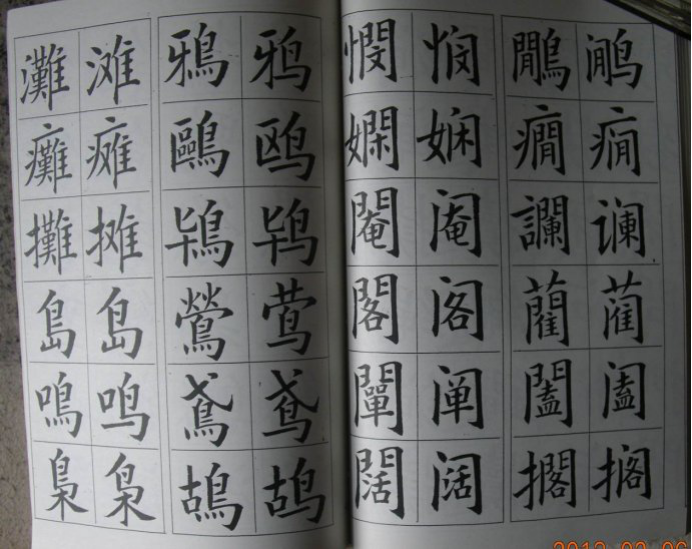 灘 滩 鴉 鸦
癱 瘫 鷗 鸥
攤 摊 鴇 鸨
島 岛 鶯 莺
鳴 鸣 鳶 鸢
梟 枭 鴣 鸪
憫 悯 鷴 鹇
嫻 娴 癇 痫
閹 阉 讕 谰
閣 阁 藺 蔺
闡 阐 闔 阖
闊 阔 擱 搁